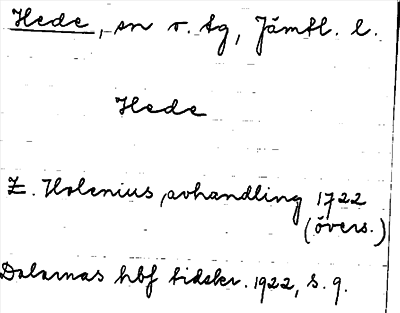 Hede, sn o. tg, Jämtl. l.
Hede
Z. Holenius, avhandling 1722
(övers.)
Dalarnas hbf tidskr. 1922, s. 9.